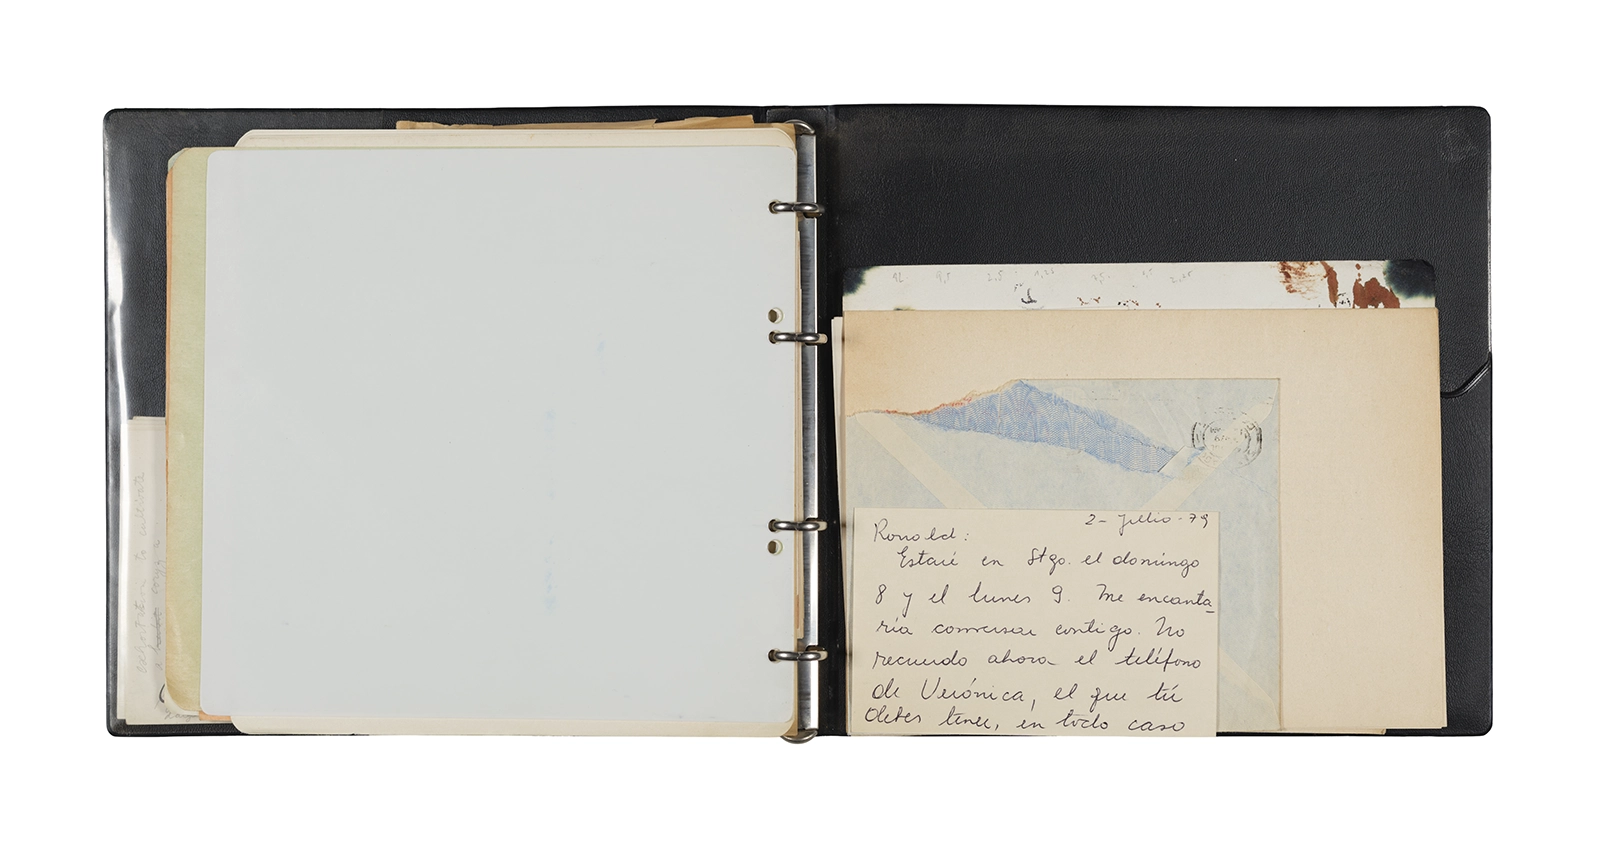 2- Julio - 79
Ronald:
Estaré en Stgo. el domingo
8 y el lunes 9. Me encanta_
ría conversar contigo. No
recuerdo ahora el teléfono
de Verónica, el que tú
debes tener, en todo caso